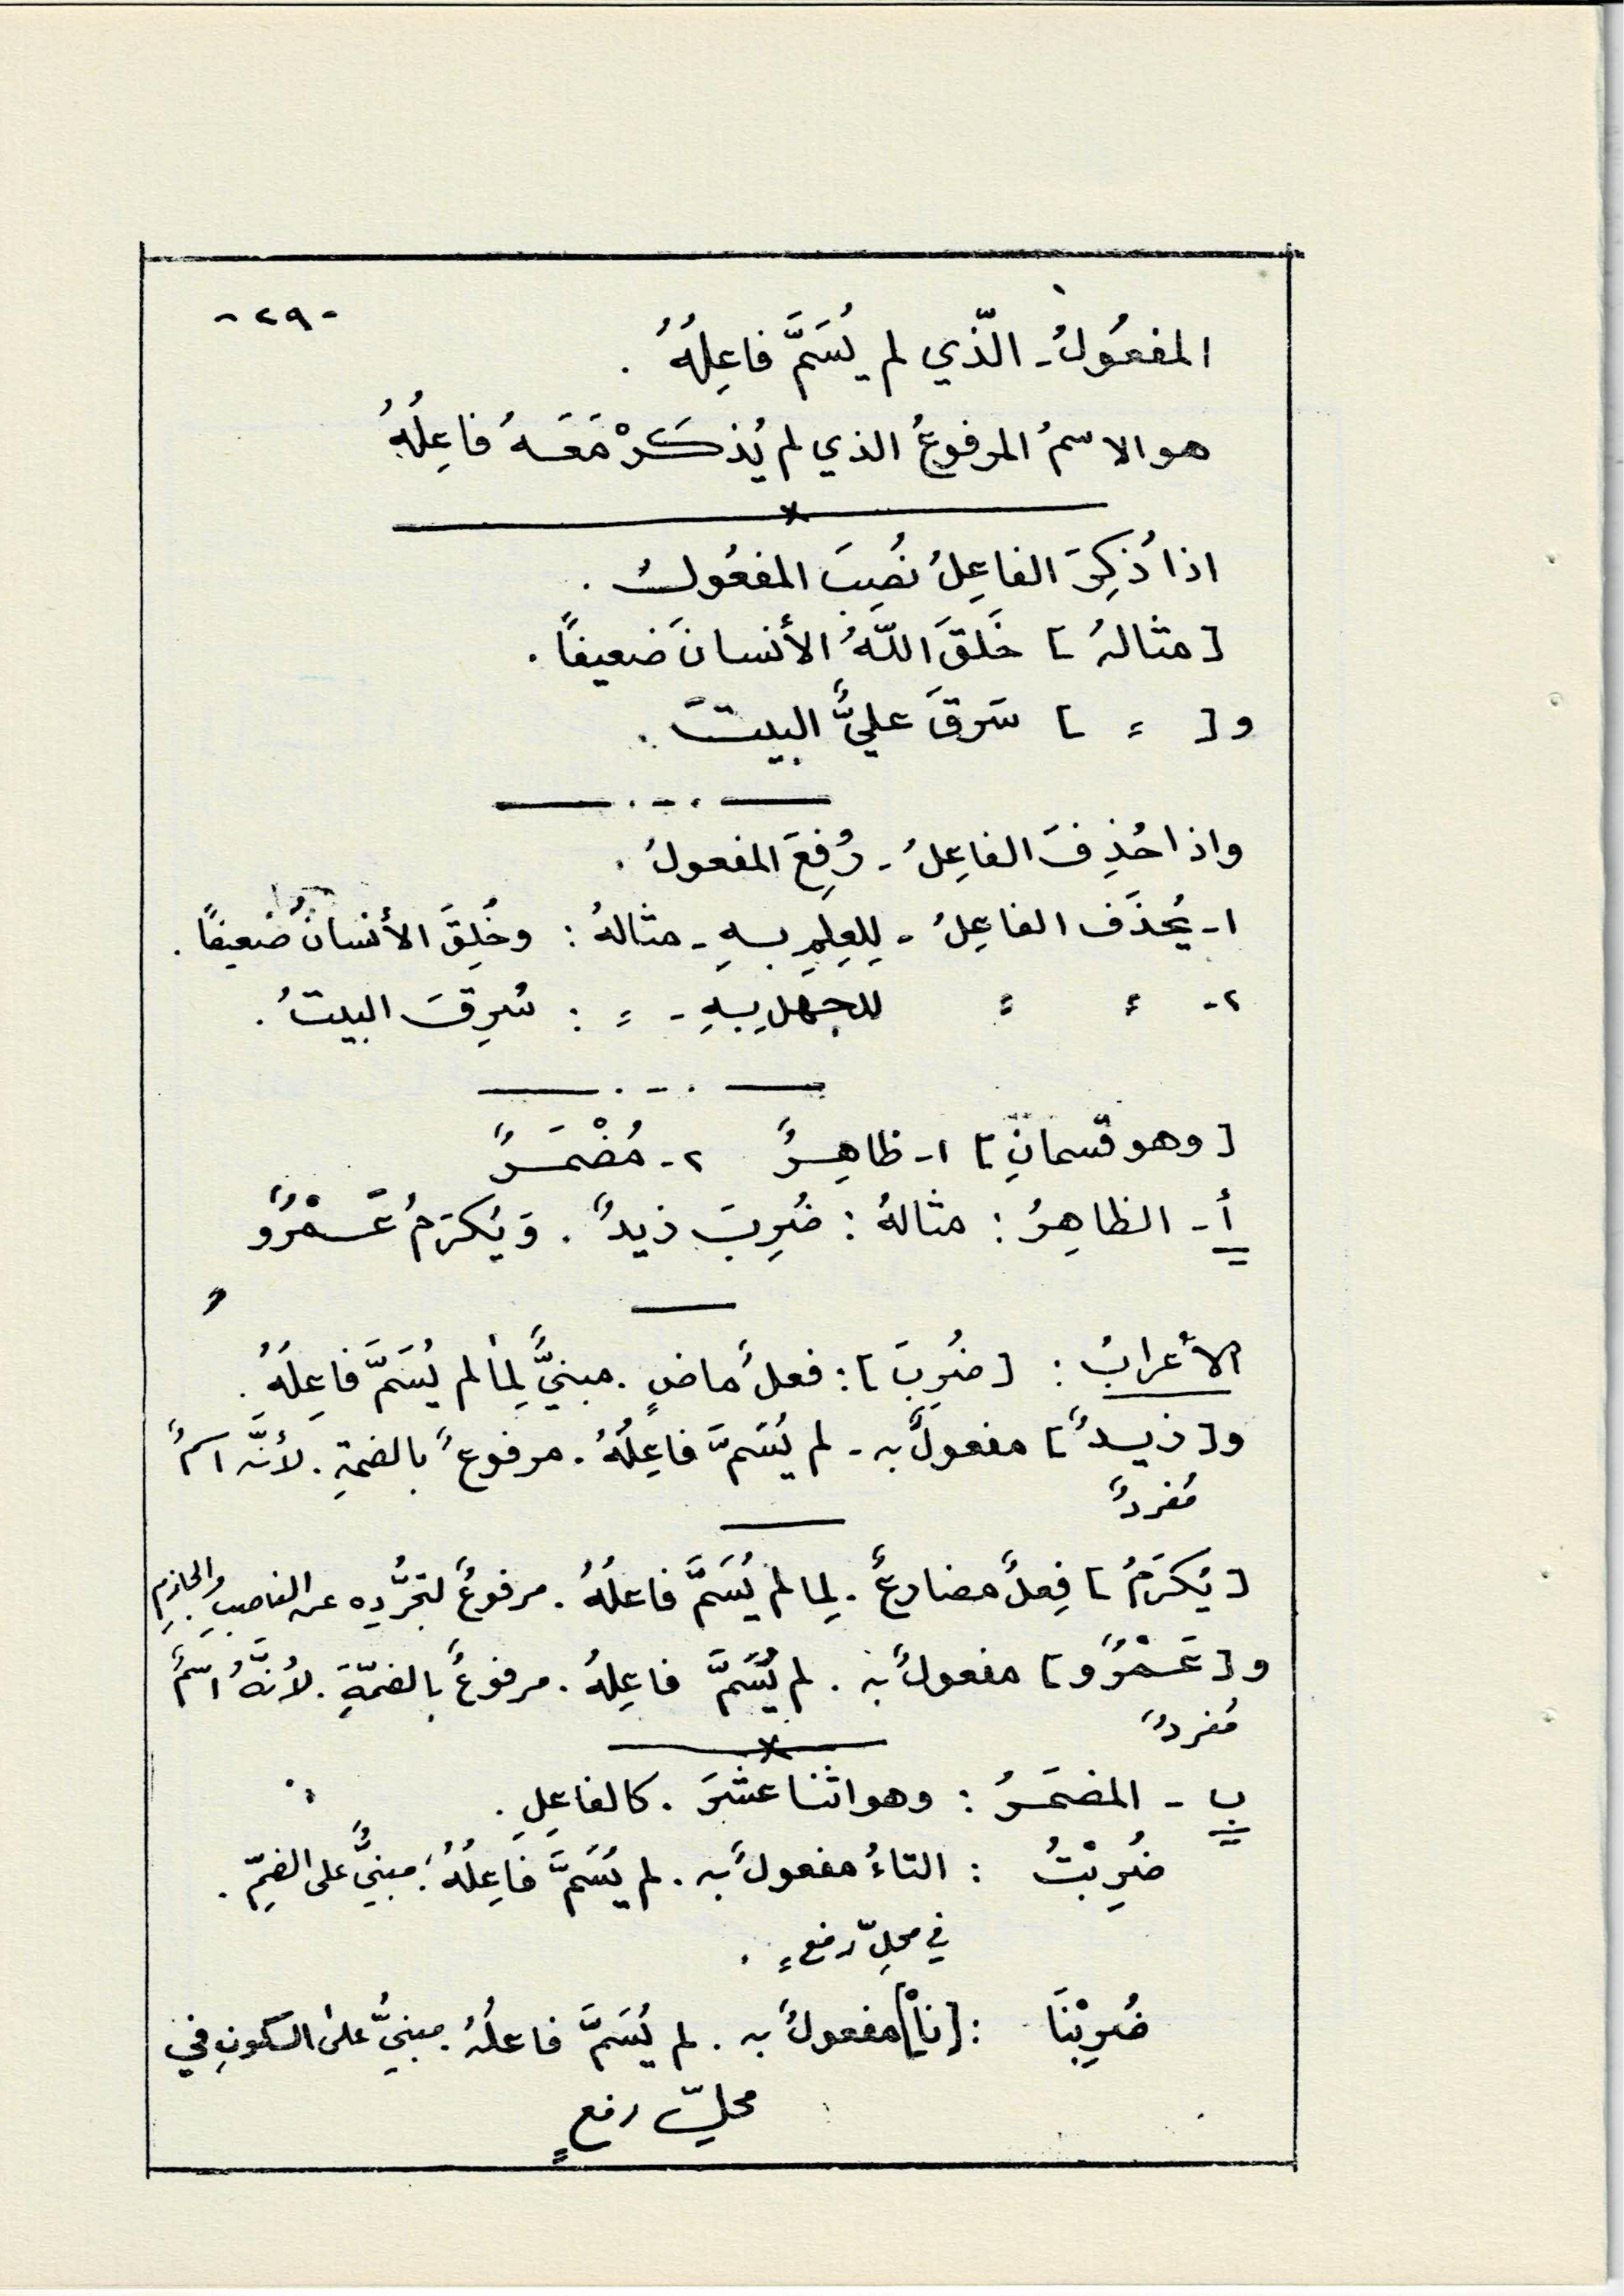 -٢٩-
المفعُولُ - الّذي لم يُسَمَّ فاعِلُهُ .
هو الاسمُ المرفوعُ الذي لم يُذكَرْ مَعَهُ فاعِلُهُ
اذا ذُكِرَ الفاعِلُ نُصِبَ المفعُولُ .
[ مثالهُ ] خَلَقَ اللّهُ الأنسانَ ضعيفاً .
و [ = ] سَرقَ عليٌّ البيتَ .
واذا حُذِفَ الفاعِلُ - رُفِعَ المفعولُ .
١- يُحذَف الفاعِلُ - لِلعِلمِ بهِ - مثالهُ : وخُلِقَ الأنسانُ ضعيفاً .
٢- = = للجهلِ بِهِ - = : سُرِقَ البيتُ .
[ وهو قسمانِ ] ١- ظاهِرٌ ٢- مُضْمَرٌ
أ - الظاهِرُ : مثالهُ : ضُرِبَ زيدٌ . وَيُكرَمُ عَمْرٌو
الأعرابُ : [ ضُرِبَ ] : فعلٌ ماضٍ . مبنيٌّ لِما لم يُسَمَّ فاعِلُهُ .
و [ زيدٌ ] مفعولٌ به - لم يُسَمَّ فاعِلُهُ . مرفوعٌ بالضمةِ . لأنَّه اسمٌ
مُفردٌ
[ يُكرَمُ ] فِعلٌ مضارعٌ . لِما لم يُسَمَّ فاعلُهُ . مرفوعٌ لتجرُّده عن الناصبِ والجازمِ
و [ عَمْرٌو ] مفعولٌ به . لم يُسَمَّ فاعِلهُ . مرفوعٌ بالضمّةِ . لأنَّهُ اسمٌ
مُفردٌ
ب - المضمَرُ : وهو اثنا عشَرَ . كالفاعِلِ .
ضُرِبْتُ : التاءُ مفعولٌ به . لم يُسَمَّ فاعِلُهُ . مبنيٌّ على الضمِّ .
في محلِّ رفعٍ .
ضُرِبْنَا : [ناْ] مفعولٌ به . لم يُسَمَّ فاعلُهُ . مبنيٌّ على السكونِ في
محلِّ رفعٍ